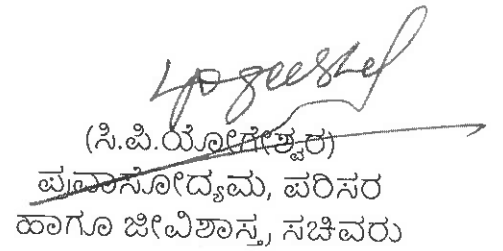 (ಸಿ.ಪಿ.ಯೋಗೇಶ್ವರ)
ಪ್ರವಾಸೋದ್ಯಮ, ಪರಿಸರ
ಹಾಗೂ ಜೀವಿಶಾಸ್ತ್ರ ಸಚಿವರು